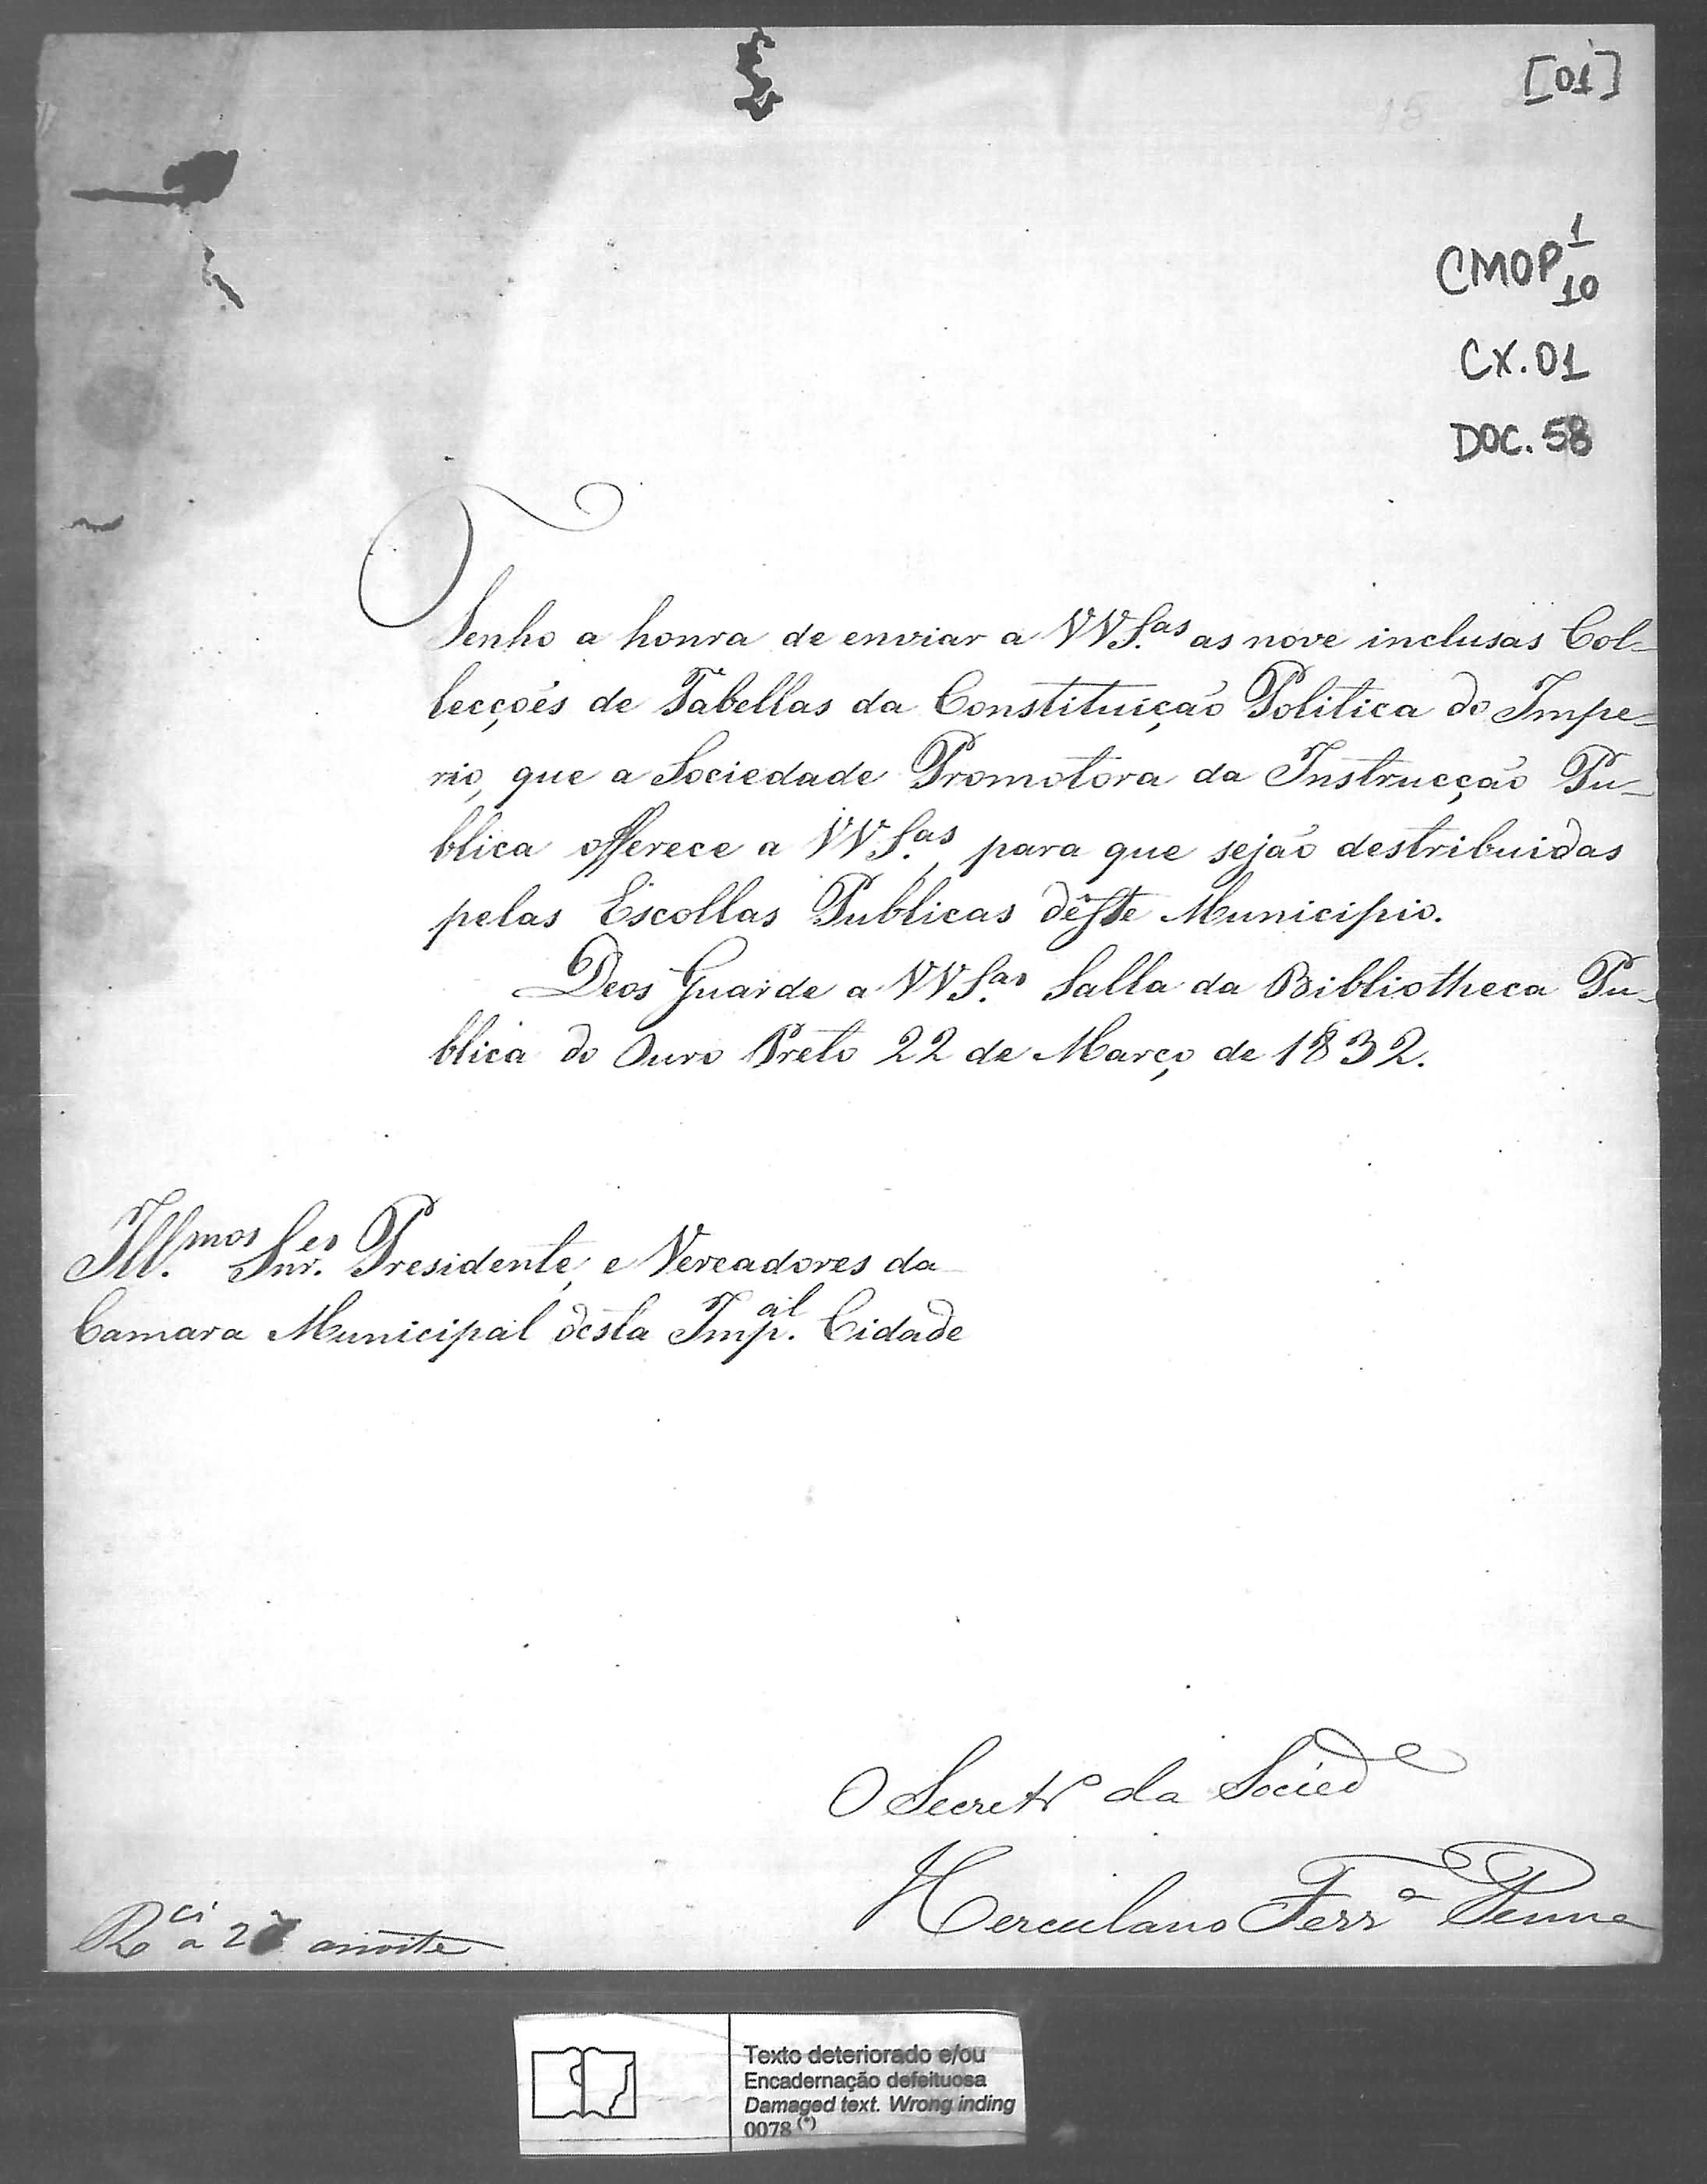 [01]
CMOP 1
10
CX.01
DOC. 58
Tenho a honra de enviar a VV S.as as nove inclusas Col=
lecções de Tabellas da Constituição Politica do Impe=
rio, que a Sociedade Promotora da Instrucção Pu=
blica offerece a VV S.as, para que sejão destribuidas
pelas Escollas Publicas deste Municipio.
Deos Guarde a VV S.as Salla da Bibliotheca Pu=
blica do Ouro Preto 22 de Março de 1832.
Ill.mos Snr.es Presidente, e Vereadores da
Camara Municipal desta Imp.al Cidade
O Secretr.o da Socied.e
Herculano Ferr.a Penna
R.ci a 2
Texto deteriorado e/ou
Encadernação defeituosa
Damaged text. Wrong inding
0078 (*)